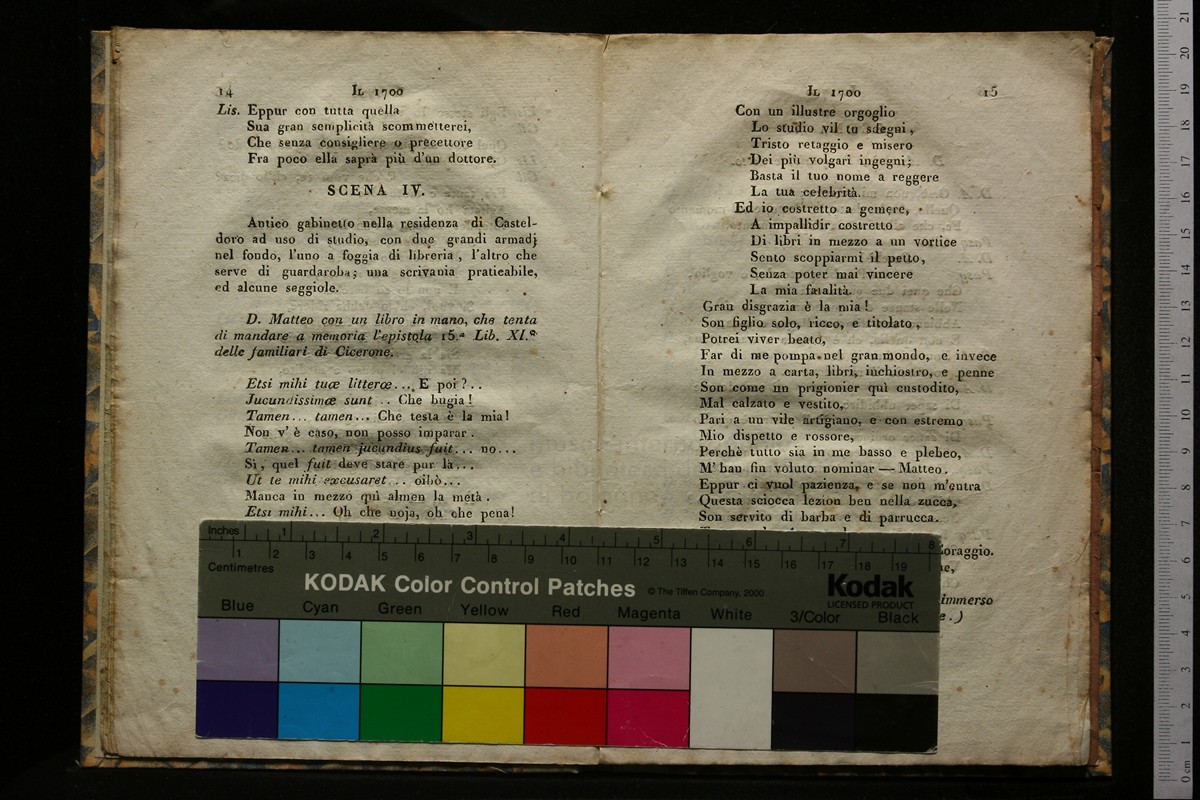 14 IL 1700
Lis. Eppur con tutta quella
Sua gran semplicità scommetterei,
Che senza consigliere o precettore
Fra poco ella saprà più d'un dottore.
SCENA IV.
Antico gabinetto nella residenza di Castel-
doro ad uso di studio, con due grandi armadj
nel fondo, l'uno a foggia di libreria, l'altro che
serve di guardaroba; una scrivania praticabile,
ed alcune seggiole.
D. Matteo con un libro in mano, che tenta
di mandare a memoria l'epistola 15.a Lib. XI.o
delle familiari di Cicerone.
Etsi mihi tuæ litteræ... E poi?..
Jucundissimæ sunt .. Che bugia!
Tamen... tamen... Che testa è la mia!
Non v' è caso, non posso imparar.
Tamen... tamen jucundius fuit... no...
Sì, quel fuit deve stare pur là...
Ut te mihi excusaret... oibò...
Manca in mezzo quì almen la metà.
Etsi mihi... Oh che noja, oh che pena!
IL 1700 15
Con un illustre orgoglio
Lo studio vil tu sdegni,
Tristo retaggio e misero
Dei più volgari ingegni;
Basta il tuo nome a reggere
La tua celebrità.
Ed io costretto a gemere,
A impallidir costretto
Di libri in mezzo a un vortice
Sento scoppiarmi il petto,
Senza poter mai vincere
La mia fatalità.
Gran disgrazia è la mia!
Son figlio solo, ricco, e titolato,
Potrei viver beato,
Far di me pompa nel gran mondo, e invece
In mezzo a carta, libri, inchiostro, e penne
Son come un prigionier quì custodito,
Mal calzato e vestito,
Pari a un vile artigiano, e con estremo
Mio dispetto e rossore,
Perchè tutto sia in me basso e plebeo,
M' han fin voluto nominar — Matteo.
Eppur ci vuol pazienza, e se non m'entra
Questa sciocca lezion ben nella zucca,
Son servito di barba e di parrucca.
Coraggio.
immerso
e.)
Inches 1 2 3 4 5 6 7 8
Centimetres 1 2 3 4 5 6 7 8 9 10 11 12 13 14 15 16 17 18 19
KODAK Color Control Patches © The Tiffen Company, 2000 Kodak
LICENSED PRODUCT
Blue Cyan Green Yellow Red Magenta White 3/Color Black
21
20
19
18
17
16
15
14
13
12
11
10
9
8
7
6
5
4
3
2
1
0 cm